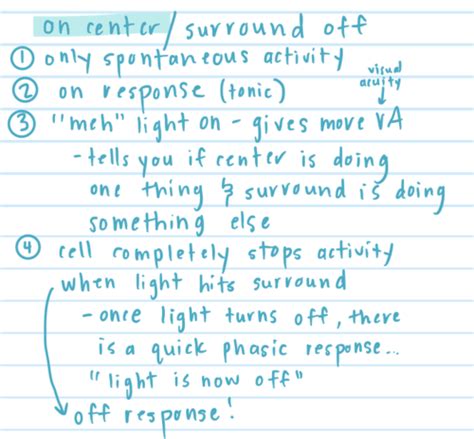 on center / surround off
① only spontaneous activity
② on response (tonic)
visual acuity
③ "meh" light on - gives move VA
- tells you if center is doing
one thing & surround is doing
something else
④ cell completely stops activity
when light hits surround
- once light turns off, there
is a quick phasic response...
"light is now off"
off response!